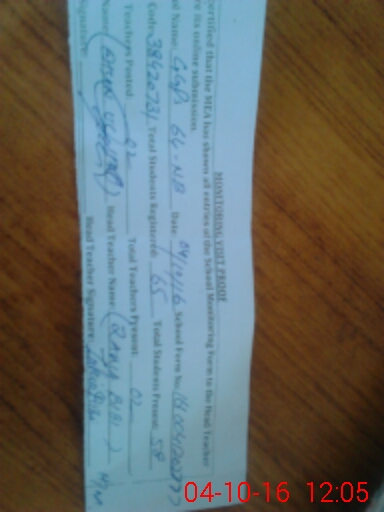 MONITORING VISIT PROOF
certified that the MEA has shown all entries of the School Monitoring Form to the Head Teacher
re its online submission.
ol Name: GGPS 64-NB Date: 04/10/16 School Form No:
Code: 38420731 Total Students Registered: 65 Total Students Present: 58
Teachers Posted: 02 Total Teachers Present: 02
Name: Head Teacher Name: (RAZIA BIBI)
Signature: Head Teacher Signature:
04-10-16 12:05